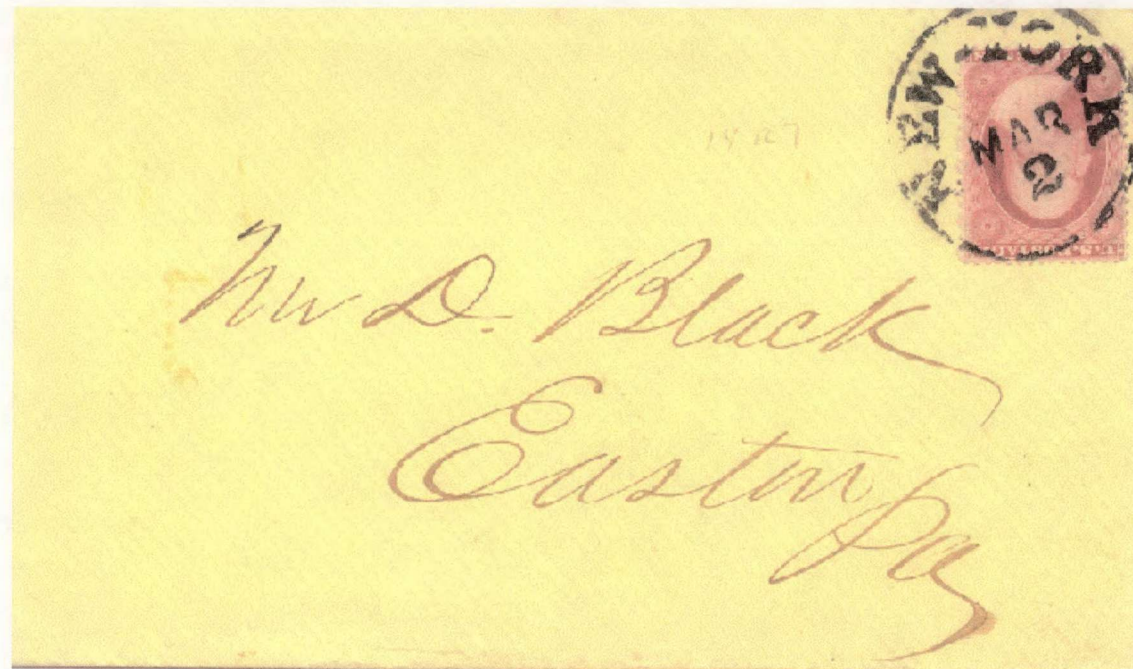 NEW-YORK
MAR
2
Mr D. Black
Easton
Pa